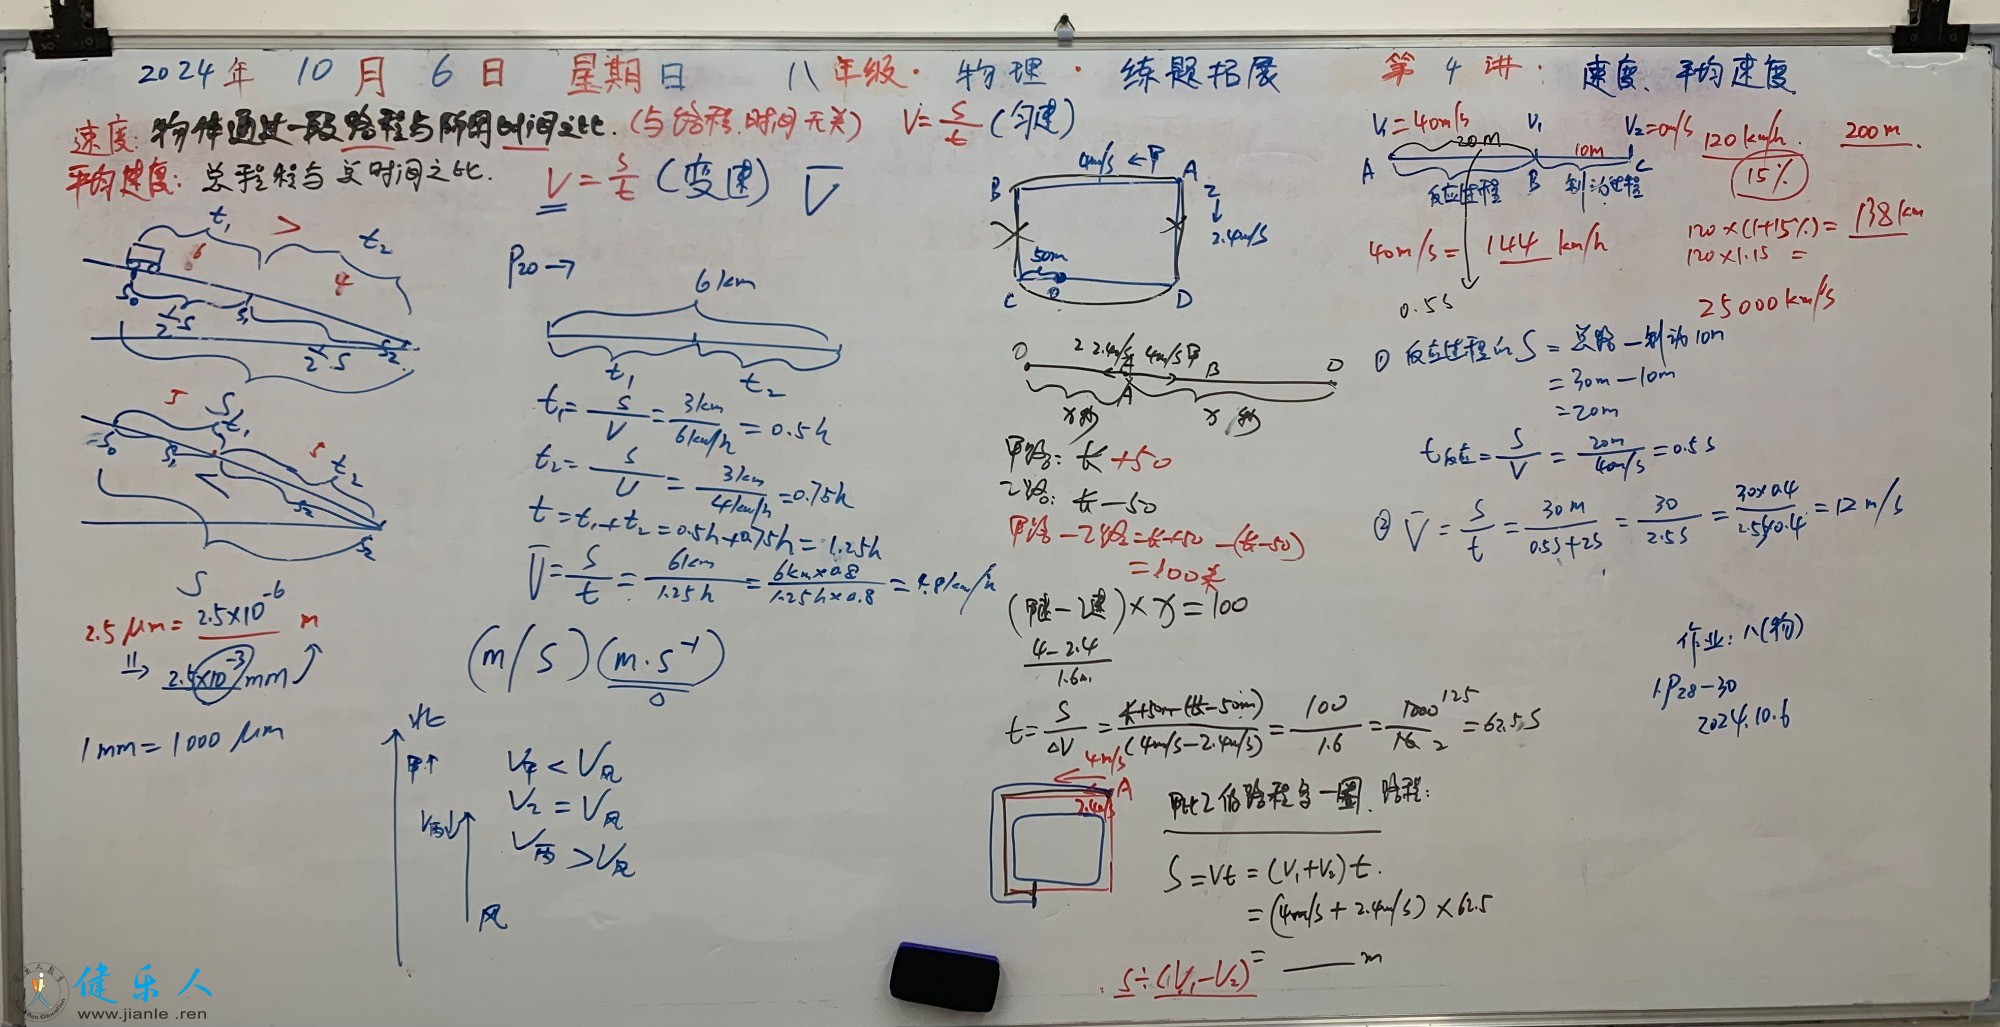 2024年 10月 6日 星期日 八年级·物理·练题拓展 第4讲: 速度、平均速度
速度: 物体通过一段路程与所用时间之比.(与路程.时间无关) V=s/t (匀速)
平均速度: 总路程与总时间之比. V=s/t (变速) V̄
t₁ > t₂
6
4
S₀ S₁ S₂
½S
½S
S
5 S t₁
5 t₂
S₀ S₁ S₂ S₂
S
2.5μm= 2.5×10⁻⁶ m
2.5×10⁻³ mm
1mm=1000 μm
P20→
6km
t₁ t₂
t₁= S/V = 3km/6km/h = 0.5h
t₂= S/V = 3km/4km/h =0.75h
t=t₁+t₂=0.5h+0.75h=1.25h
V̄=S/t = 6km/1.25h = 6km×0.8/1.25h×0.8 = 4.8km/h
(m/s)(m·s⁻¹)
北
甲↑
V丙↓
风
V甲<V风
V乙=V风
V丙>V风
4m/s ←甲 A
B 乙
↓
2.4m/s
50m
C O D
O 乙 2.4m/s 4m/s甲 B O
A
x秒 x秒
甲路: 长+50
乙路: 长-50
甲路-乙路=长+50-(长-50)
=100米
(甲速-乙速)×x=100
4-2.4
1.6
t=S/ΔV = 长+50m-(长-50m)/(4m/s-2.4m/s) = 100/1.6 = 1000/16 125 2 =62.5s
4m/s
A
2.4m/s
甲比乙的路程多一圈.路程:
S=Vt=(V₁+V₂)t.
=(4m/s+2.4m/s)×62.5
= ___ m
S÷(V₁-V₂)
V₁=40m/s V₁ V₂=0m/s
20m 10m
A B C
反应过程 制动过程
120km/h. 200m.
15%
40m/s= 144 km/h
0.5s
120×(1+15%)= 138km
120×1.15 =
25000km/s
① 反应过程的S=总路-制动10m
=30m-10m
=20m
t反应=S/V = 20m/40m/s =0.5s
② V̄=S/t = 30m/0.5s+2s = 30/2.5s = 30×0.4/2.5×0.4 =12m/s
作业: 八(物)
1.P28-30
2024.10.6
健乐人
www.jianle.ren